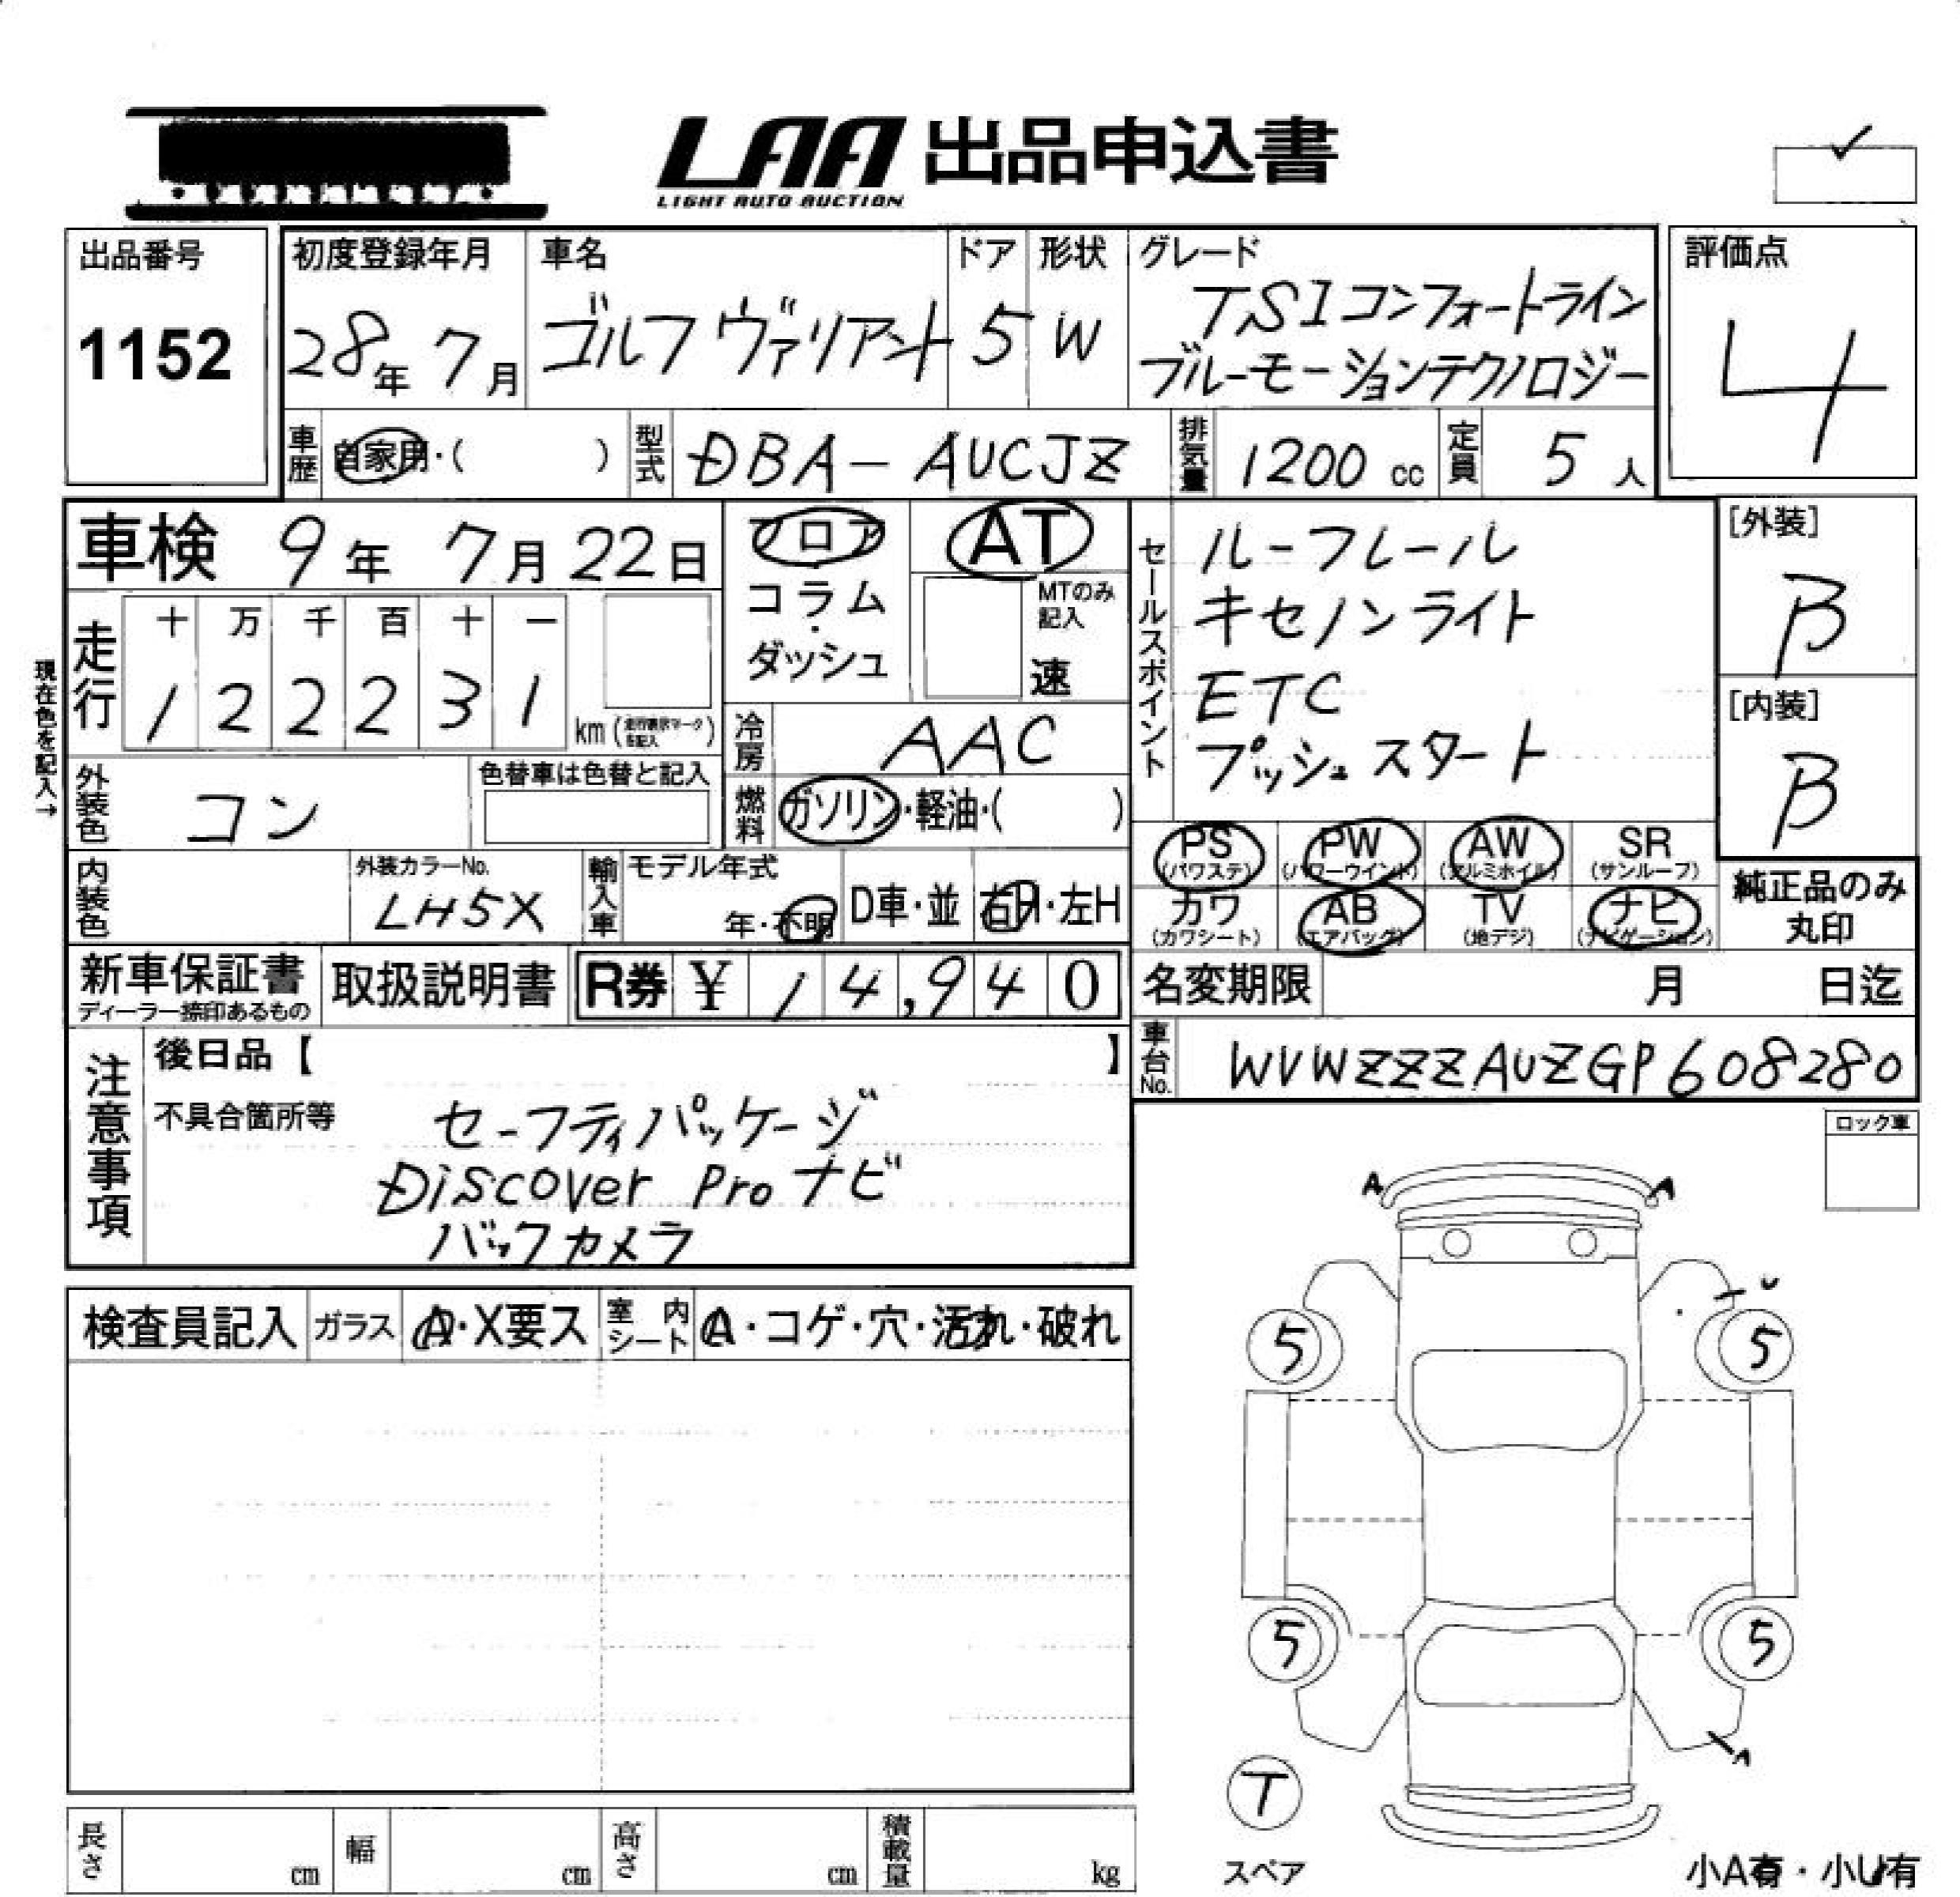 LAA 出品申込書
LIGHT AUTO AUCTION
出品番号
1152
初度登録年月
28年 7月
車名
ゴルフ ヴァリアント
ドア
5
形状
W
グレード
TSIコンフォートライン
ブルーモーションテクノロジー
評価点
4
車歴 自家用・( )
型式 DBA-AUCJZ
排気量 1200 cc
定員 5 人
車検 9年 7月 22日
走行
十 万 千 百 十 一
1 2 2 2 3 1
km(走行表示マークを記入)
現在色を記入→
フロア
コラム
・
ダッシュ
AT
MTのみ
記入
速
セールスポイント
ルーフレール
キセノンライト
ETC
プッシュスタート
[外装]
B
[内装]
B
冷房 AAC
燃料 ガソリン・軽油・( )
外装色 コン
色替車は色替と記入
内装色
外装カラーNo.
LH5X
輸入車
モデル年式
年・不明
D車・並
右H・左H
PS (パワステ)
PW (パワーウインド)
AW (アルミホイル)
SR (サンルーフ)
カワ (カワシート)
AB (エアバッグ)
TV (地デジ)
ナビ (ナビゲーション)
純正品のみ
丸印
新車保証書
ディーラー捺印あるもの
取扱説明書
R券 ¥ 14,940
名変期限 月 日迄
車台No. WVWZZZAUZGP608280
注意事項
後日品【 】
不具合箇所等
セーフティパッケージ
Discover Pro ナビ
バックカメラ
ロック車
検査員記入
ガラス A・X要ス
室内シート A・コゲ・穴・汚れ・破れ
A A
U
5 5
5 5
A
T
スペア
小A有・小U有
長さ cm
幅 cm
高さ cm
積載量 kg